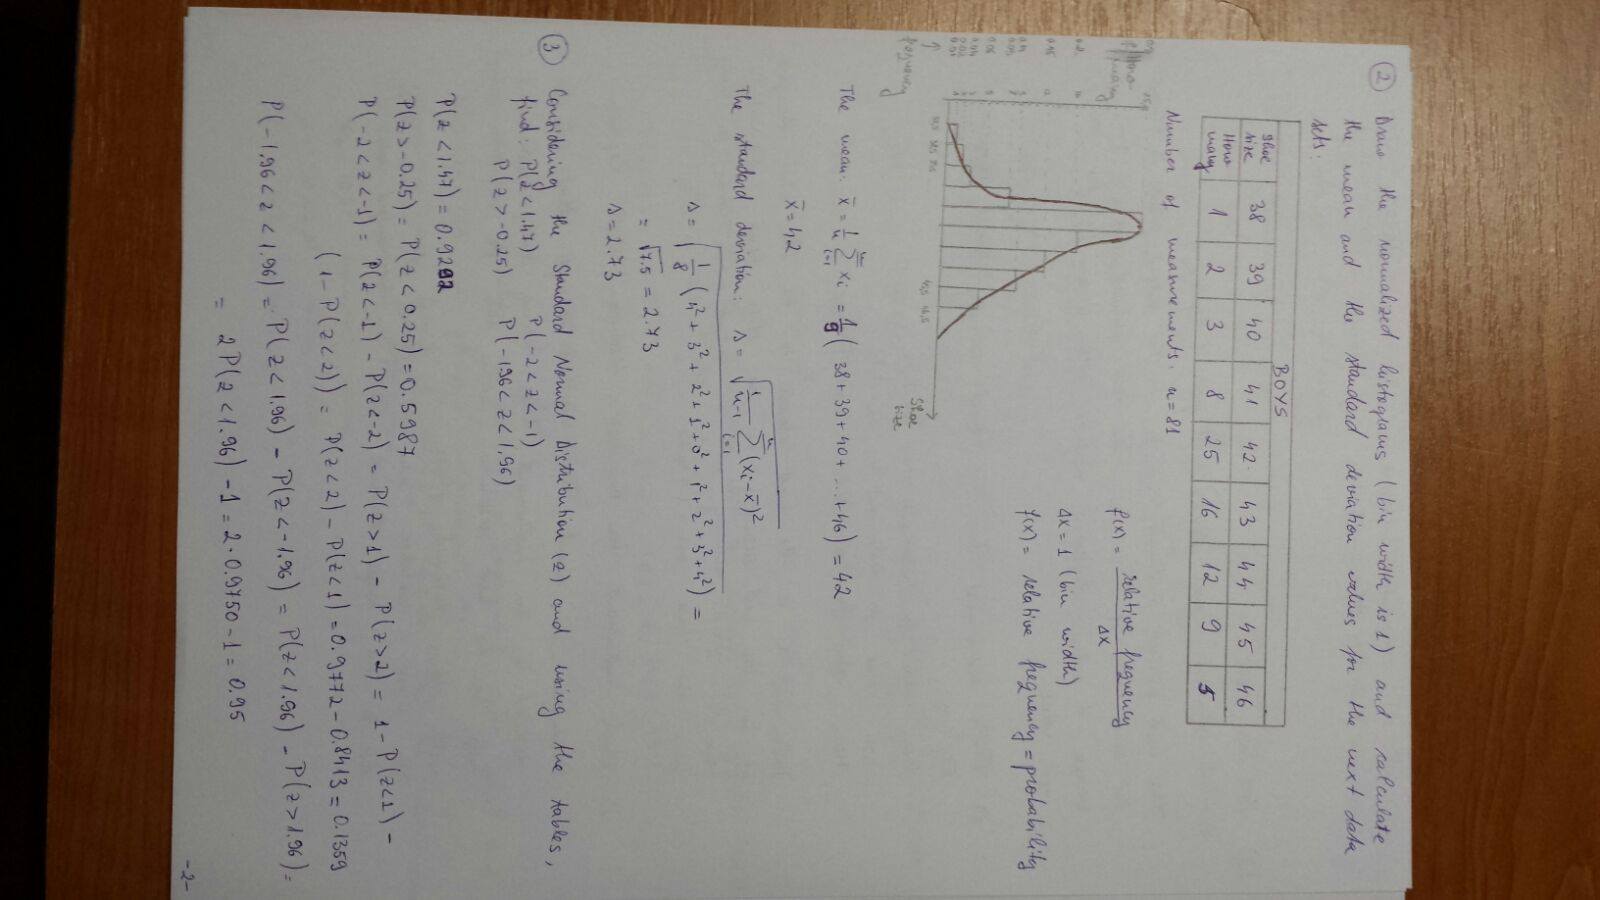 ② Draw the normalized histograms (bin width is 1) and calculate
the mean and the standard deviation values for the next data
sets:
BOYS
Shoe size 38 39 40 41 42 43 44 45 46
How many 1 2 3 8 25 16 12 9 5
Number of measurements: n = 81
f(x) = relative frequency / Δx
Δx = 1 (bin width)
f(x) = relative frequency = probability
How many
45,5 46,5
Shoe size
↑
frequency
The mean: x̄ = 1/n Σ_{i=1}^{n} xi = 1/9 (38+39+40+ ...+46) = 42
x̄ = 42
The standard deviation: s = √(1/(n-1) Σ_{i=1}^{n} (xi-x̄)²)
s = √(1/8 (4² + 3² + 2² + 1² + 0² + 1² + 2² + 3² + 4²)) =
= √7.5 = 2.73
s = 2.73
③ Considering the Standard Normal Distribution (z) and using the tables,
find: P(z < 1.47) P(-2 < z < -1)
P(z > -0.25) P(-196 < z < 1.96)
P(z < 1.47) = 0.9292
P(z > -0.25) = P(z < 0.25) = 0.5987
P(-2 < z < -1) = P(z < -1) - P(z < -2) = P(z > 1) - P(z > 2) = 1 - P(z < 1) -
(1 - P(z < 2)) = P(z < 2) - P(z < 1) = 0.9772 - 0.8413 = 0.1359
P(-1.96 < z < 1.96) = P(z < 1.96) - P(z < -1.96) = P(z < 1.96) - P(z > 1.96) =
= 2P(z < 1.96) - 1 = 2·0.9750 - 1 = 0.95
-2-